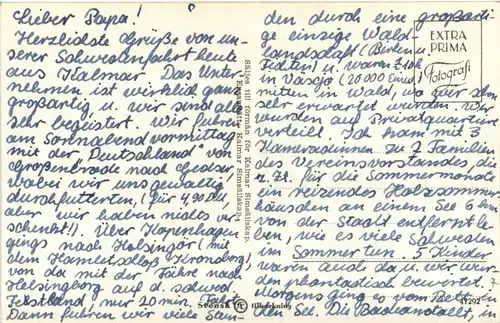 Lieber Papa!
Herzlichste Grüße von un-
serer Schwedenfahrt heute
aus Kalmar. Das Unter-
nehmen ist wirklich ganz
großartig u. wir sind alle
sehr begeistert. Wir fuhren
am Sonnabend vormittag
mit der "Deutschland" von
Großenbrode nach Gedser,
wobei wir uns gewaltig
durchfutterten, (für 4,90 DM
aber wir haben nichts ver-
schenkt!). Über Kopenhagen
gings nach Helsingör (mit
dem Hamletschloß Kronborg)
von da mit der Fähre nach
Helsingborg auf d. schwed.
Festland, nur 20 min. Fahrt.
Dann fuhren wir viele Stun-
Säljes till förmån för Kalmar Simsällskap.
Ensamrätt: Kalmar Simsällskap.
Svensk tillverkning
den durch eine großarti-
ge einzige Wald-
landschaft (Birken u.
Fichten) u. waren 7.10 h
in Växjö (20 000 Einw.)
mitten im Wald, wo wir schon
sehr erwartet wurden. Wir
wurden auf Privatquartiere
verteilt. Ich kam mit 3
Kameradinnen zu 2 Familien
des Vereinsvorstandes, die
z. Zt. für die Sommermonate
ein reizendes Holzsommer-
häuschen an einem See 6 km
von der Stadt entfernt be-
wohnen, wie es viele Schweden
im Sommer tun. 5 Kinder
waren auch da u. wir wur-
den phantastisch bewirtet.
Morgens ging es vom Bett in
den See. Die Badeanstalt, in
EXTRA
PRIMA
Fotografi